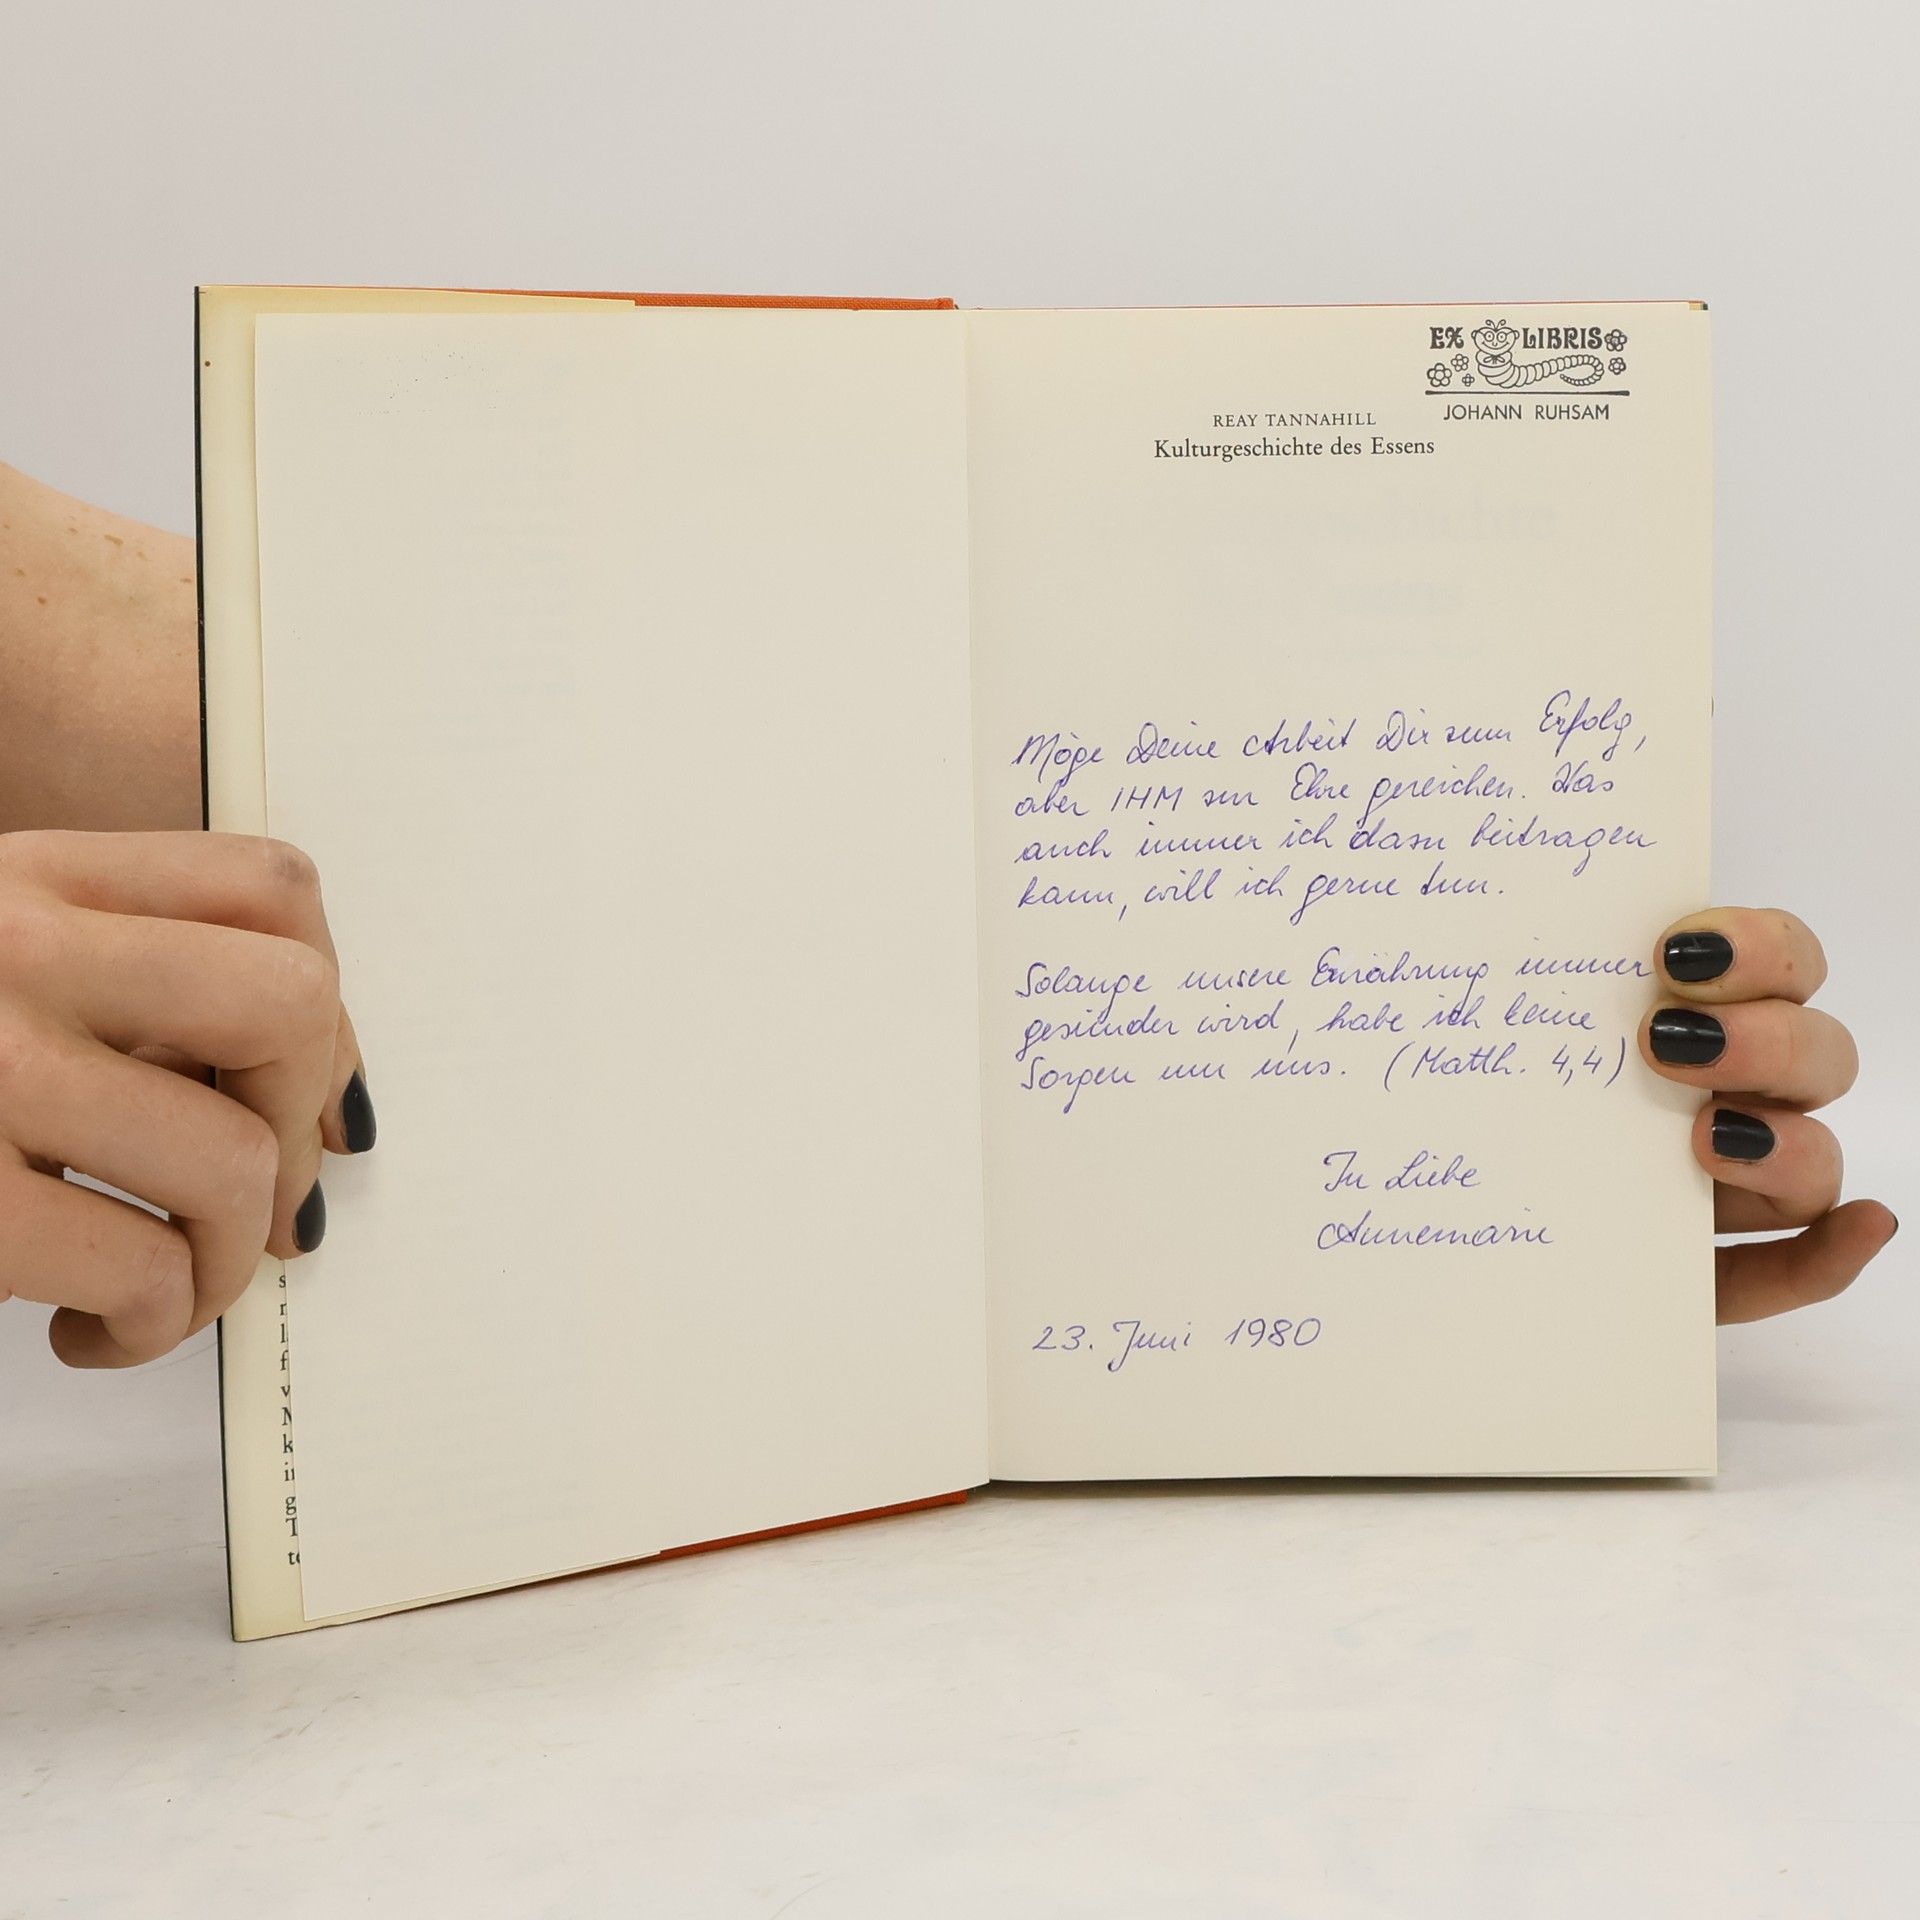 EX LIBRIS
JOHANN RUHSAM
REAY TANNAHILL
Kulturgeschichte des Essens
Möge Deine Arbeit Dir zum Erfolg,
aber IHM zur Ehre gereichen. Was
auch immer ich dazu beitragen
kann, will ich gerne tun.
Solange unsere Ernährung immer
gesünder wird, habe ich keine
Sorgen um uns. (Matth. 4,4)
In Liebe
Annemarie
23. Juni 1980